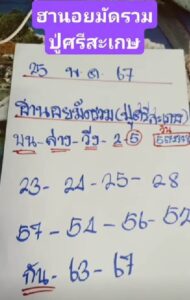 ฮานอยมัดรวม
ปู่ศรีสะเกษ
25 พ.ค. 67
ฮานอยมัดรวม (ปู่ศรีสะเกษ)
บน - ล่าง - วิ่ง - 2 - 5
23 - 24 - 25 - 28
57 - 54 - 56 - 52
กัน - 63 - 67